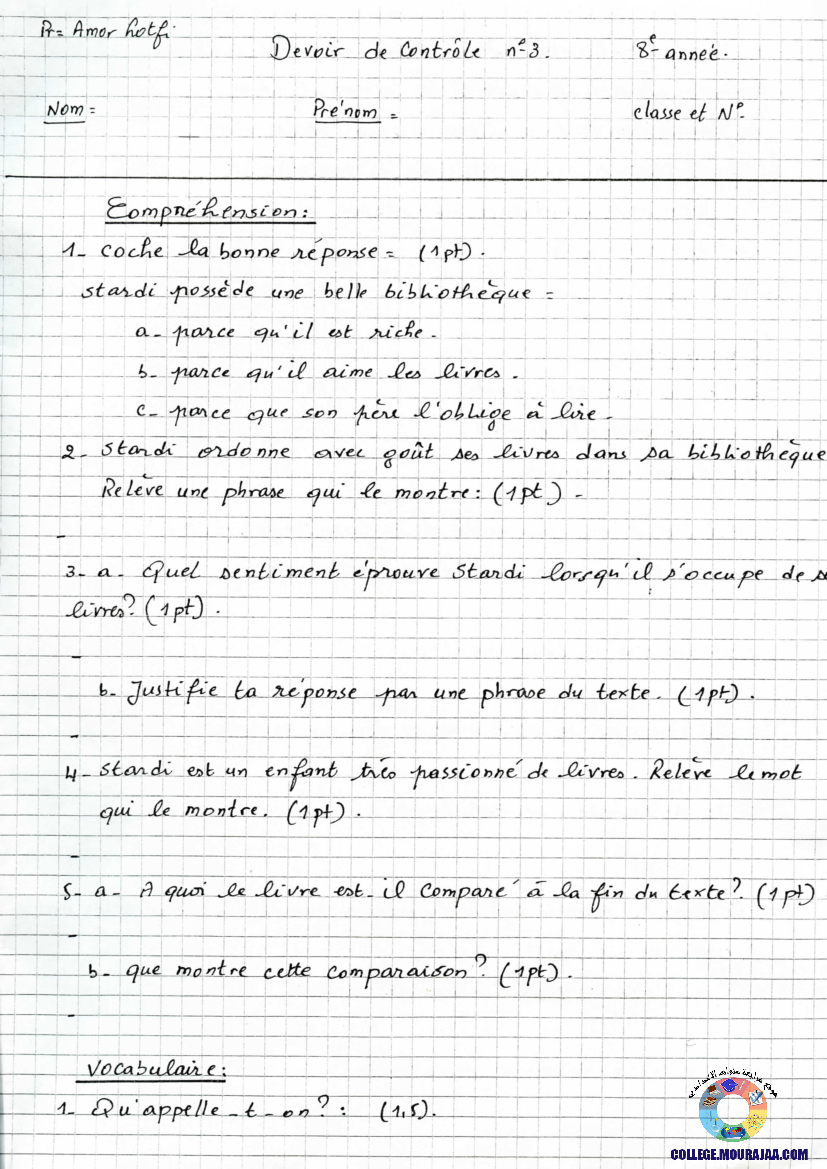 Pr= Amor hotfi
Devoir de Contrôle nº3. 8e année.
Nom = Prénom = classe et Nº.
Compréhension:
1- coche la bonne réponse = (1pt).
stardi possède une belle bibliothèque =
a- parce qu'il est riche.
b- parce qu'il aime les livres.
c- parce que son père l'oblige à lire.
2- stardi ordonne avec goût ses livres dans sa bibliothèque
Relève une phrase qui le montre: (1pt) -
-
3- a- Quel sentiment éprouve Stardi lorsqu'il s'occupe de s
livres? (1pt).
-
b- Justifie ta réponse par une phrase du texte. (1pt).
-
4- stardi est un enfant très passionné de livres. Relève le mot
qui le montre. (1pt).
-
5- a- A quoi le livre est-il comparé à la fin du texte? (1pt)
-
b- que montre cette comparaison? (1pt).
-
Vocabulaire:
1- Qu'appelle-t-on?: (1,5).
COLLEGE.MOURAJAA.COM